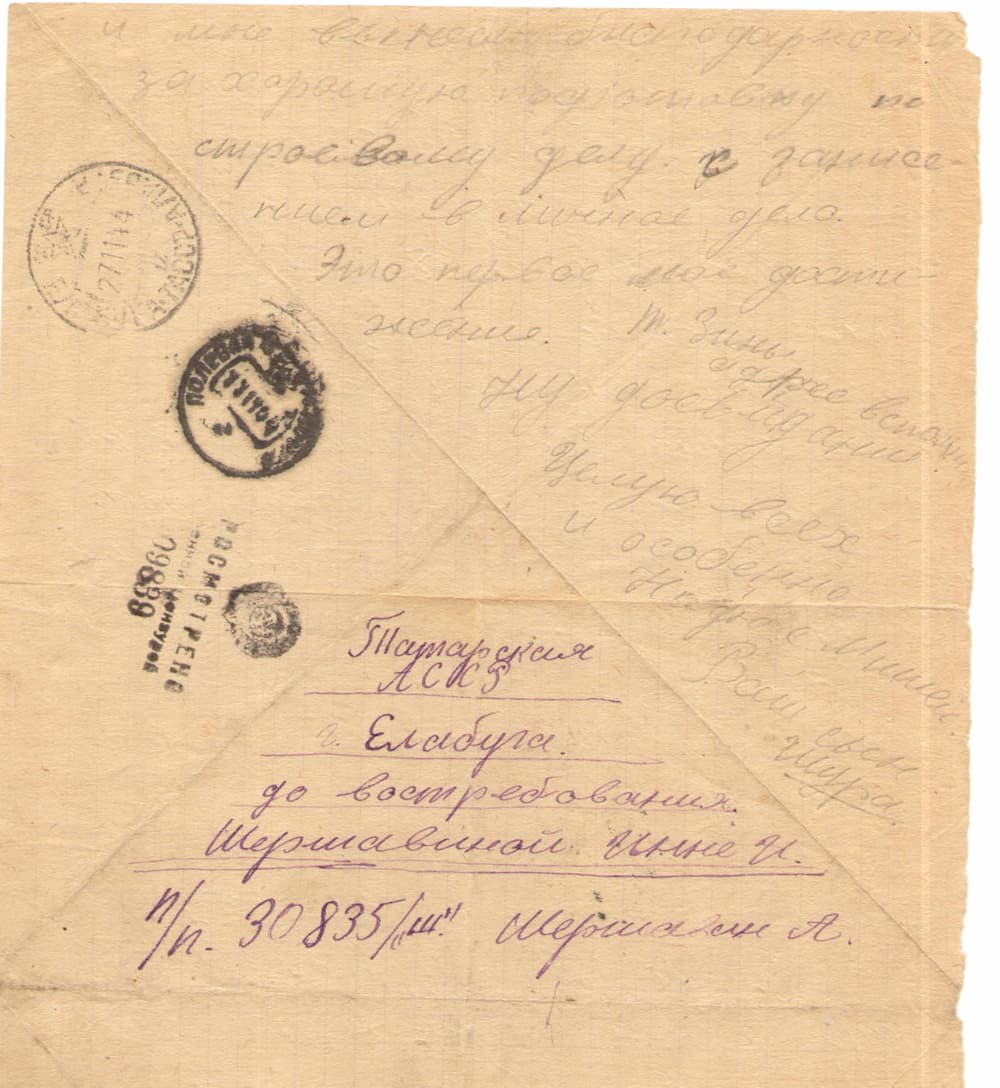 и мне вынесли благодарность
за хорошую подготовку по
строевому делу. с занисе-
нием в личное дело.
Это первое мое дости-
жение. т. Зины
адрес
Ну досвидания
Целую всех
и особенно
Ваш сын
Шура.
ПОЛЕВАЯ
27 11 44
ПРОСМОТРЕНО
Военной Цензурой
09839
Татарская
АССР
г. Елабуга.
до востребования.
Шершавиной Инне И.
п/п. 30835/„Ш" Шершавин А.